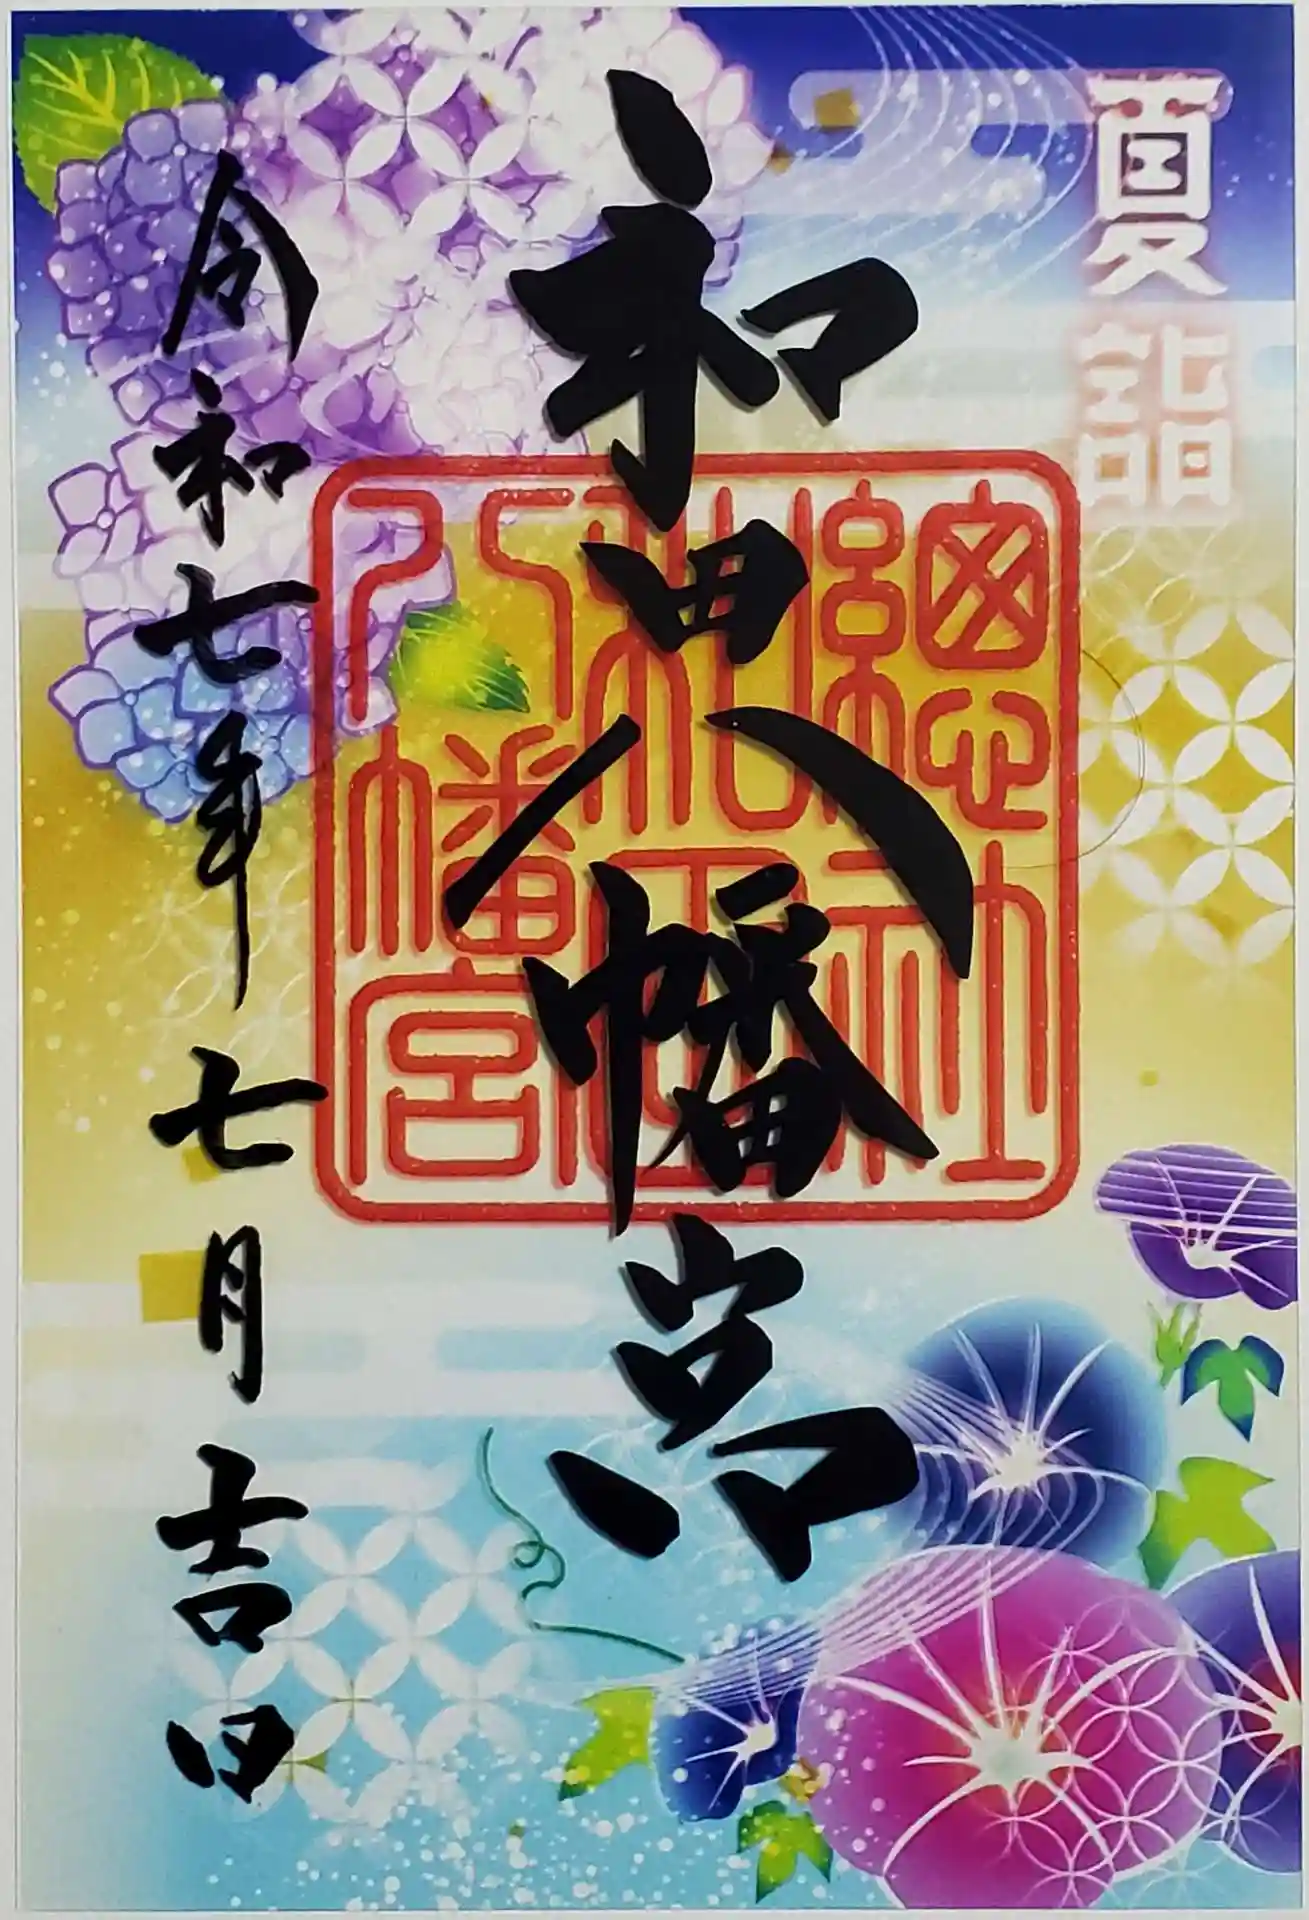 夏詣
和田八幡宮
總社
和田
八幡宮
令和七年七月吉日